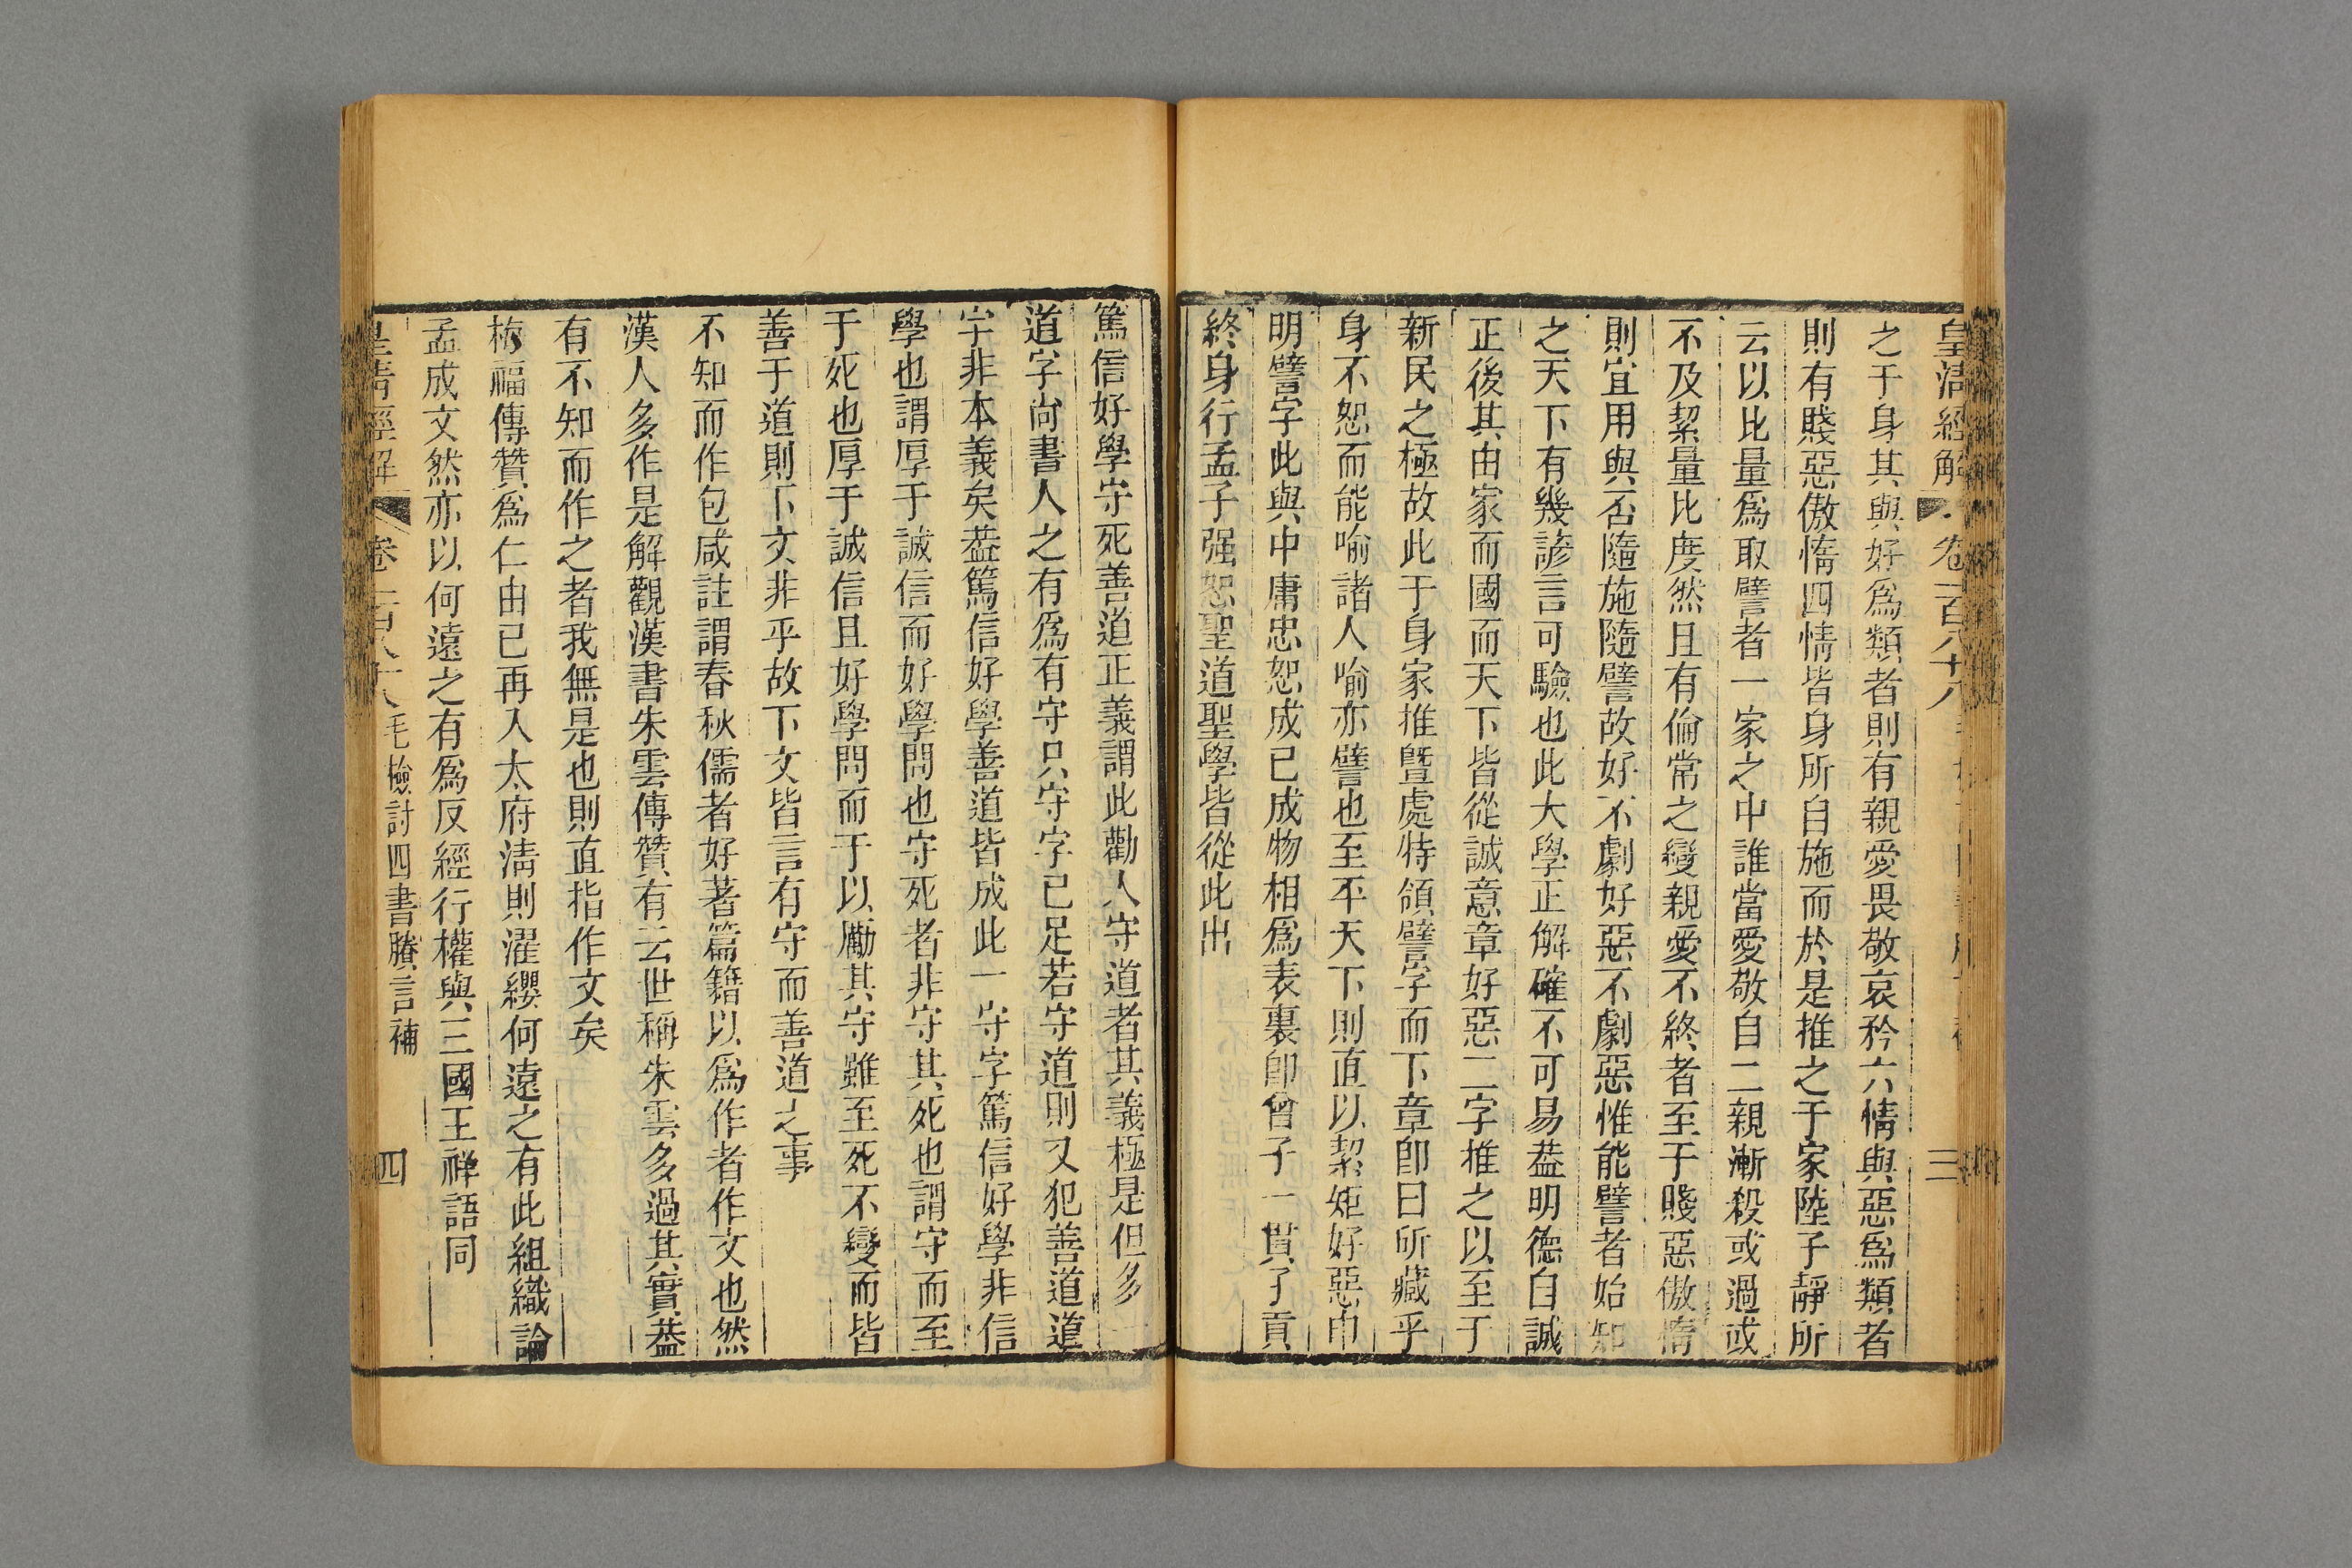 皇清經解 卷一百八十八 三
之于身其與好爲類者則有親愛畏敬哀矜六情與惡爲類者
則有賤惡傲惰四情皆身所自施而於是推之于家陸子靜所
云以比量爲取譬者一家之中誰當愛敬自二親漸殺或過或
不及絜量比度然且有倫常之變親愛不終者至于賤惡傲惰
則宜用與否隨施隨譬故好不劇好惡不劇惡惟能譬者始知
之天下有幾諺言可驗也此大學正解確不可易葢明德自誠
正後其由家而國而天下皆從誠意章好惡二字推之以至于
新民之極故此于身家推曁處特領譬字而下章卽曰所藏乎
身不恕而能喻諸人喻亦譬也至平天下則直以絜矩好惡申
明譬字此與中庸忠恕成已成物相爲表裏卽曾子一貫子貢
終身行孟子强恕聖道聖學皆從此出
篤信好學守死善道正義謂此勸人守道者其義極是但多一
道字尙書人之有爲有守只守字已足若守道則又犯善道道
字非本義矣葢篤信好學善道皆成此一守字篤信好學非信
學也謂厚于誠信而好學問也守死者非守其死也謂守而至
于死也厚于誠信且好學問而于以勵其守雖至死不變而皆
善于道則下文非乎故下文皆言有守而善道之事
不知而作包咸註謂春秋儒者好著篇籍以爲作者作文也然
漢人多作是解觀漢書朱雲傳贊有云世稱朱雲多過其實葢
有不知而作之者我無是也則直指作文矣
梅福傳贊爲仁由已再入太府淸則濯纓何遠之有此組織論
孟成文然亦以何遠之有爲反經行權與三國王禅語同
皇清經解 卷一百八十八 毛檢討四書賸言補 四